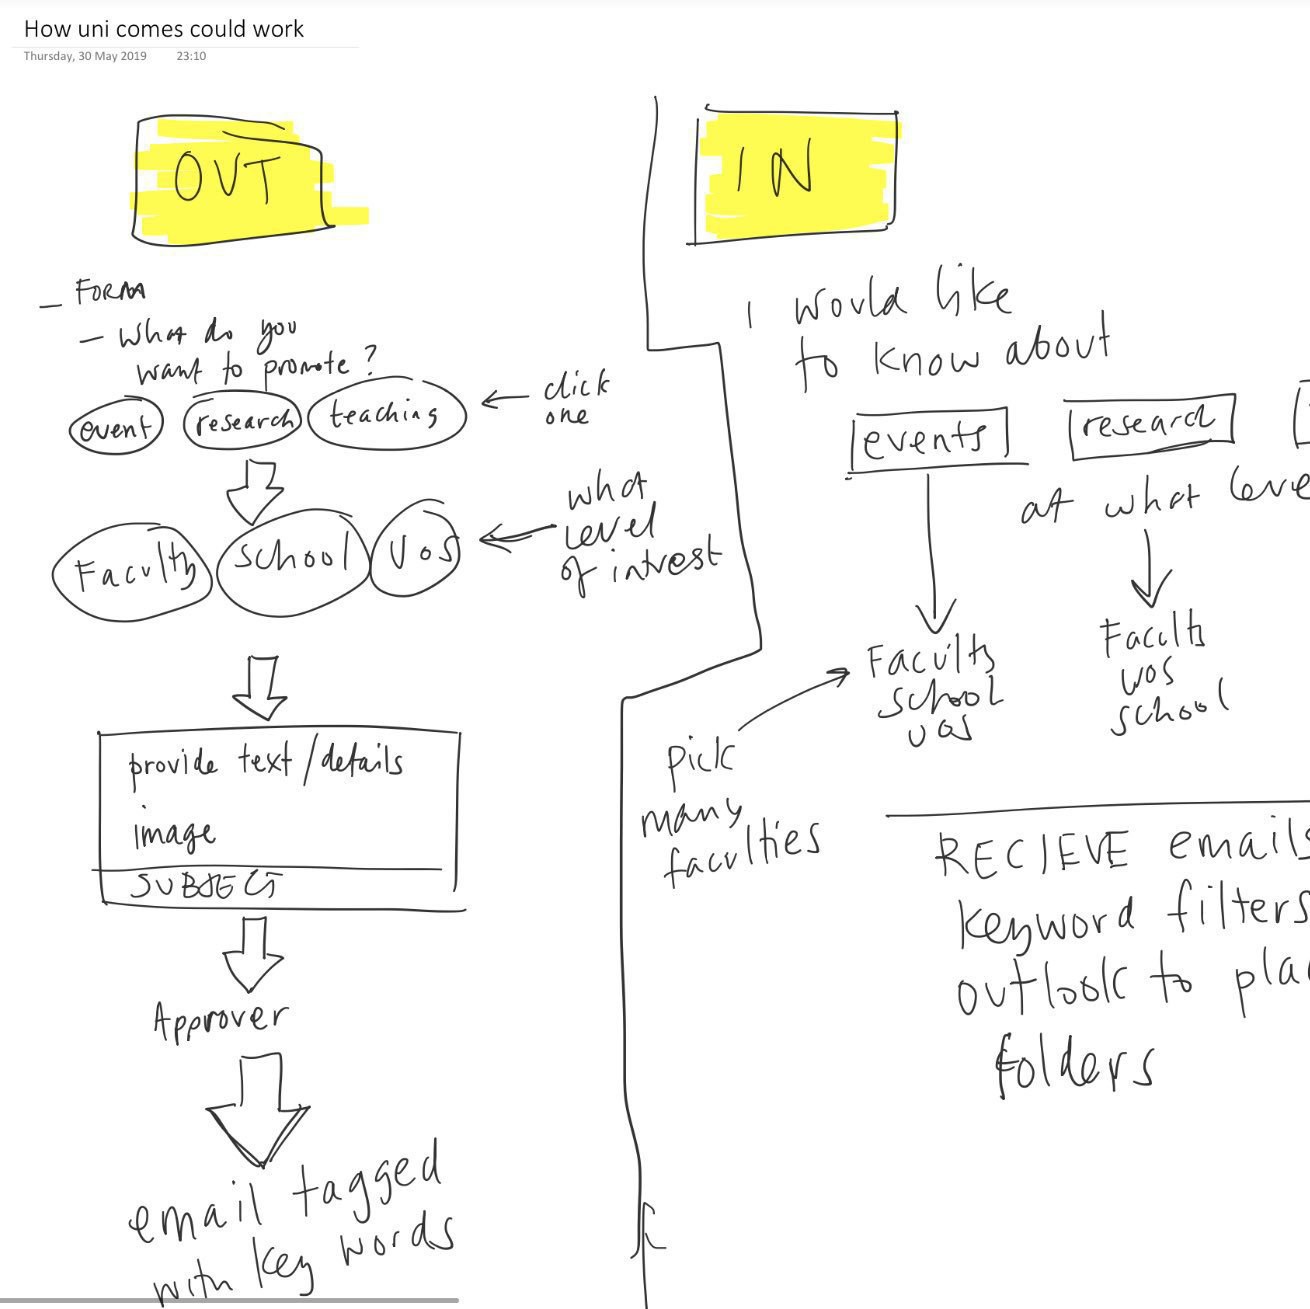 How uni comes could work
Thursday, 30 May 2019 23:10
OUT
- FORM
- What do you
want to promote?
event research teaching ← click
one
Faculty School UoS ← what
level
of intrest
provide text/details
image
SUBJECT
Approver
email tagged
with key words
IN
I would like
to know about
events research
at what leve
Faculty
school
UoS
Faculty
UoS
school
pick
many
faculties
RECIEVE emails
keyword filters
outlook to pla
folders